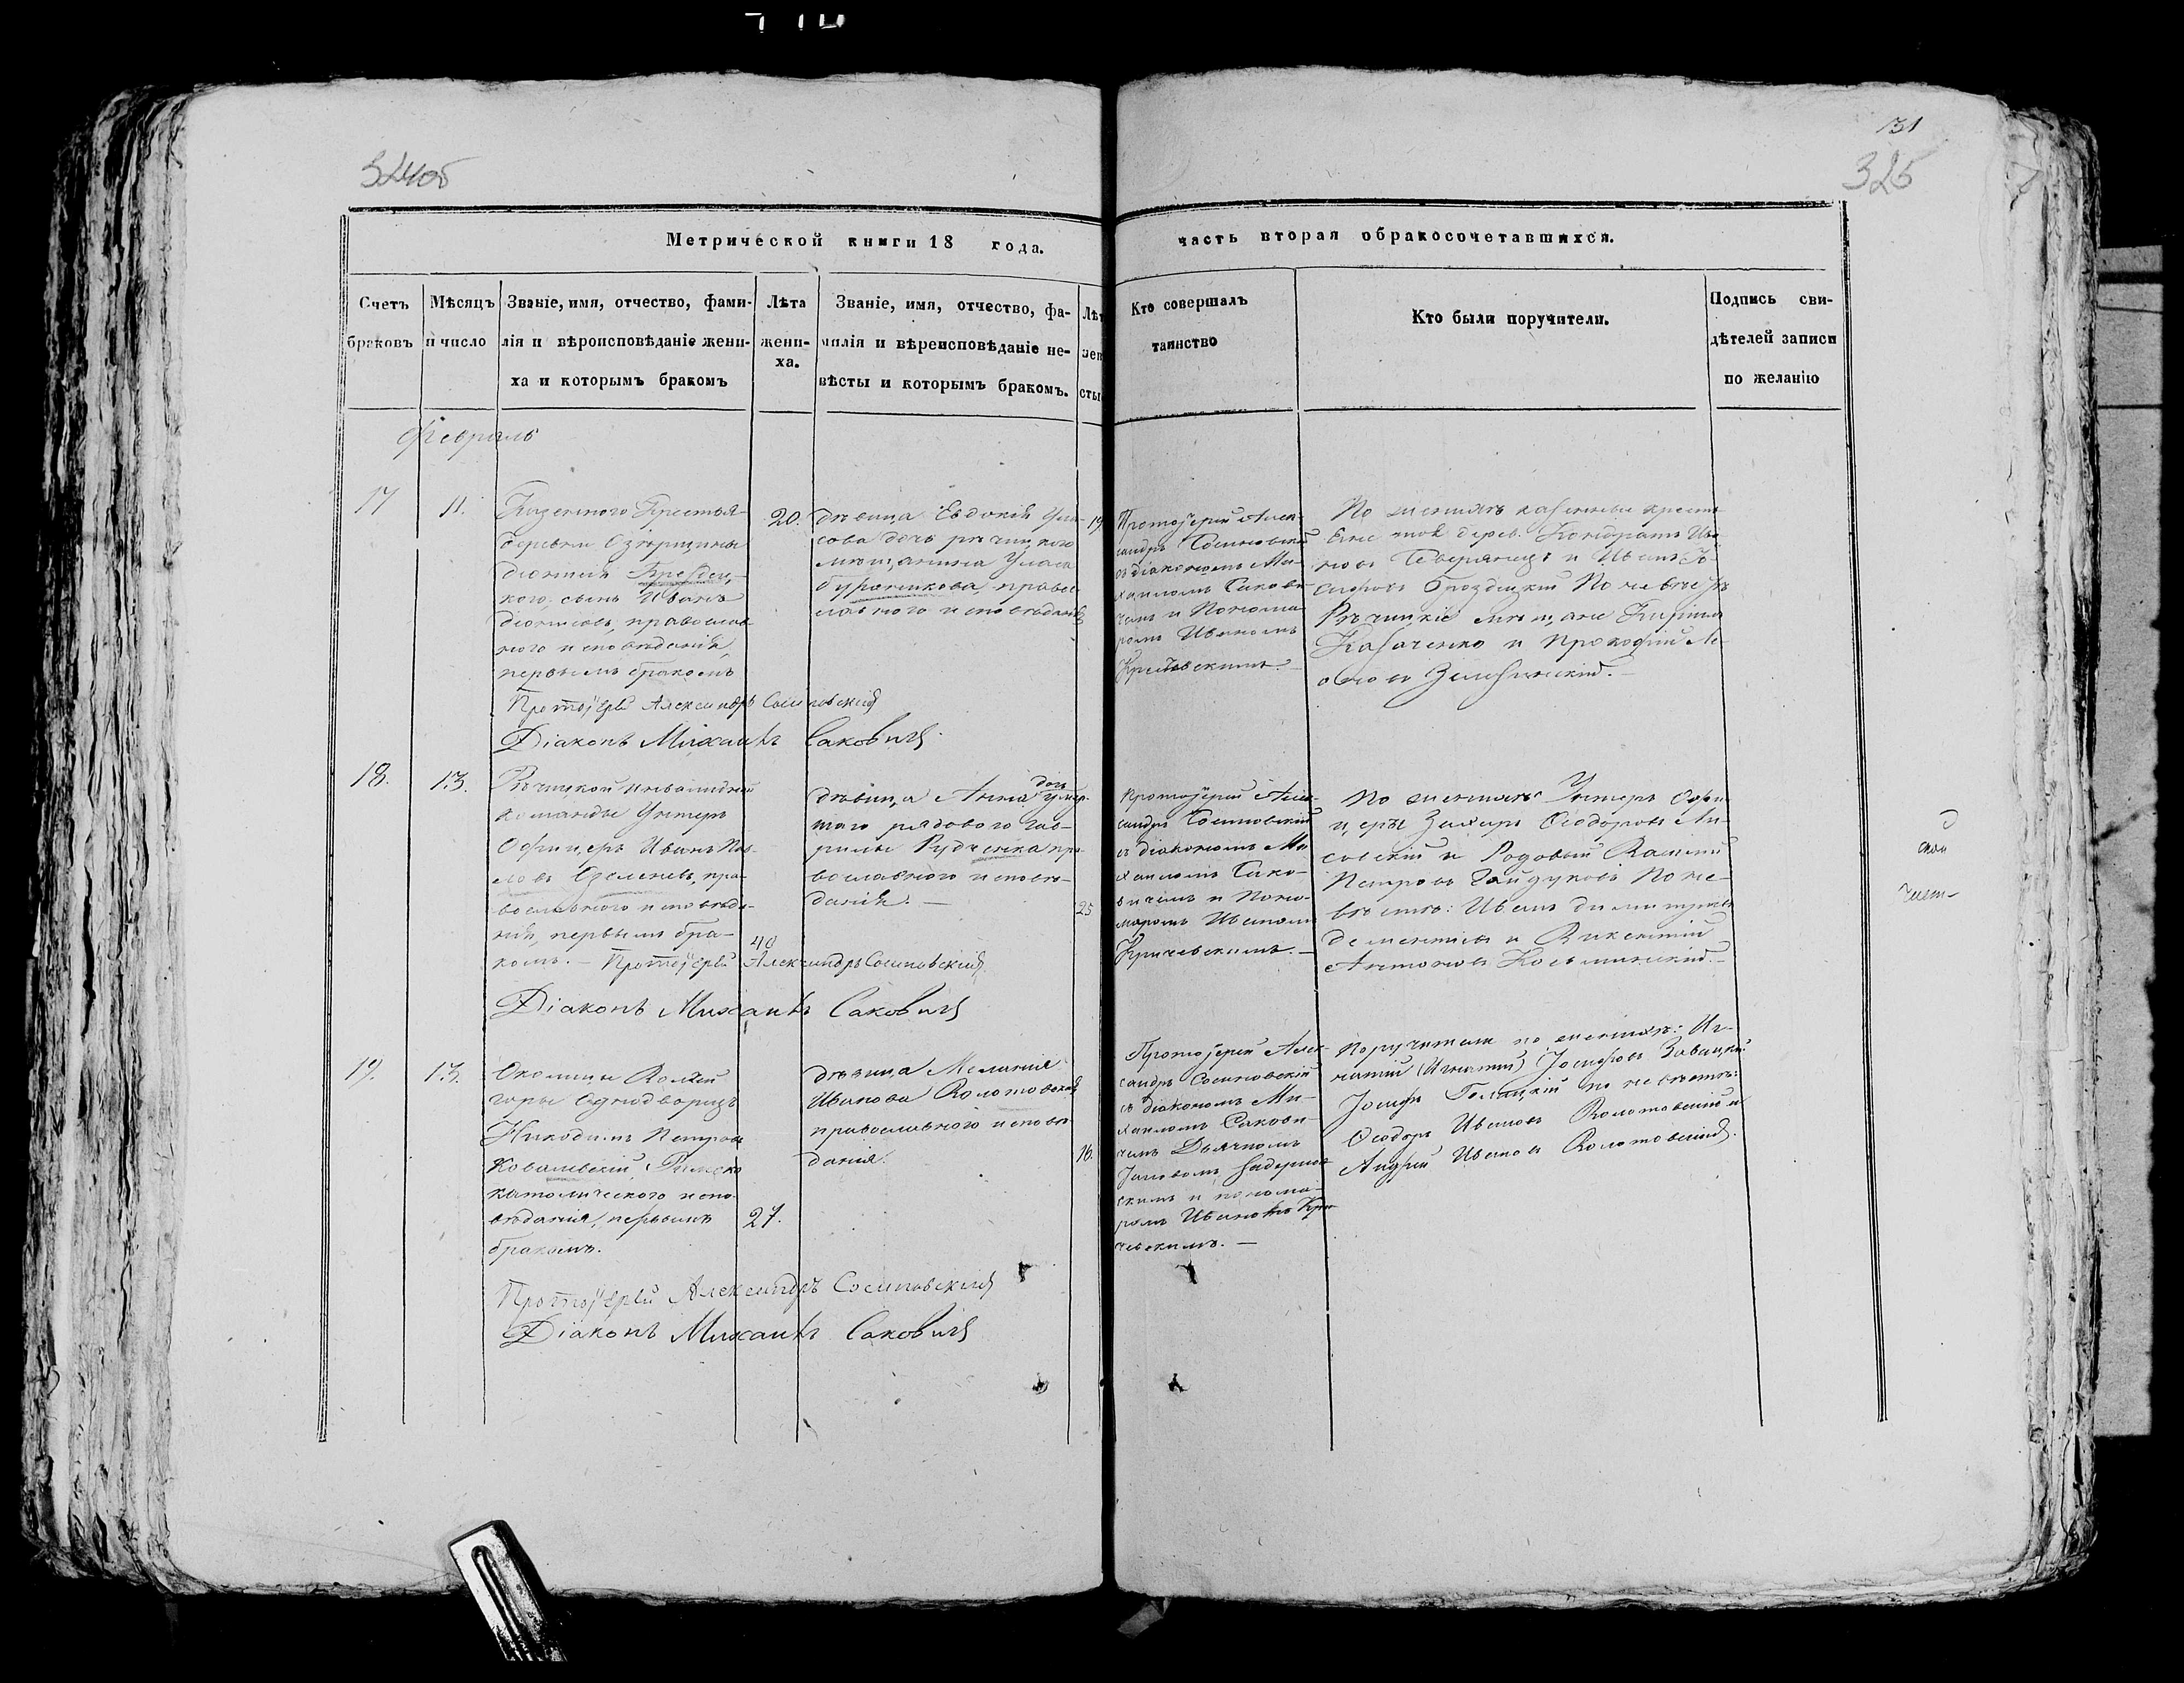 324об
131
325
Метрической книги 18 года.
часть вторая обракосочетавшихся.
Счетъ браковъ
Мѣсяцъ и число
Званіе, имя, отчество, фами-
лія и вѣроисповѣданіе жени-
ха и которымъ бракомъ
Лѣта
жени-
ха.
Званіе, имя, отчество, фа-
милія и вѣреисповѣданіе не-
вѣсты и которымъ бракомъ.
Кто совершалъ
таинство
Кто были поручители.
Подпись сви-
дѣтелей записи
по желанію
Февраль
17
11.
Казенного Крестья-
деревни Озерщины
кого, сынъ Иванъ
православ
ного исповѣданія,
первымъ бракомъ
20.
дѣвица Евдокія Ула-
сова дочь рѣчицкого
мѣщанина Уласа
Бурачникова, право
славного исповѣданія
19
Протоіерей Алек-
сандръ Сосиновскій
съ діакономъ Ми-
хаиломъ Сакови-
чемъ и Понома-
ремъ Иваномъ
Кричевскимъ.
По женихѣ казенные крест
дерев. Кондратъ Ива
новъ и Иванъ
По невѣстѣ
Рѣчицкіе мѣщане Кирилл
Казаченко и Прокофій Ле-
Протоіерей Александръ Сосиновскій
Діаконъ Михаилъ Саковичъ
18.
13.
Рѣчицкой инвалидной
команды Унтеръ
Офицеръ Иванъ Пав-
ловъ пра-
вославного исповѣда-
нія, первымъ бра-
комъ. —
40
дѣвица Анна дочь умер-
шаго рядового Гав-
рилы Рудченка пра-
вославного исповѣ-
данія. —
25
Протоіерей Алек-
сандръ Сосиновскій
съ діакономъ Ми
хаиломъ Сако-
вичемъ и Поно-
маремъ Иваномъ
Кричевскимъ. —
По женихѣ Унтеръ Офи-
церы Захаръ Ѳеодоровъ Ли-
совскій и Рядовый Василій
Петровъ Гайдуковъ По не-
вѣстѣ: Иванъ Димитріевъ
Дементіевъ и Викентій
Антоновъ
Протоіерей Александръ Сосиновскій
Діаконъ Михаилъ Саковичъ
19.
13.
Околицы Волчей
горы Однодворецъ
Никодимъ Петровъ
Ковалевскій, Римско
католического испо-
вѣданія, первымъ
бракомъ.
27.
дѣвица Меланія
Иванова Волотовская
православного исповѣ
данія.
16.
Протоіерей Алек-
сандръ Сосиновскій
съ діакономъ Ми-
хаиломъ Сакови-
чемъ Дьячкомъ
и понома-
ремъ Иваномъ Кри-
чевскимъ. —
Поручители по женихѣ: Иг-
натій (Игнатій) Іосифовъ Завацкій
Іосифъ по невѣстѣ:
Ѳеодоръ Ивановъ Волотовскій и
Андрей Ивановъ Волотовскій.
Протоіерей Александръ Сосиновскій
Діаконъ Михаилъ Саковичъ